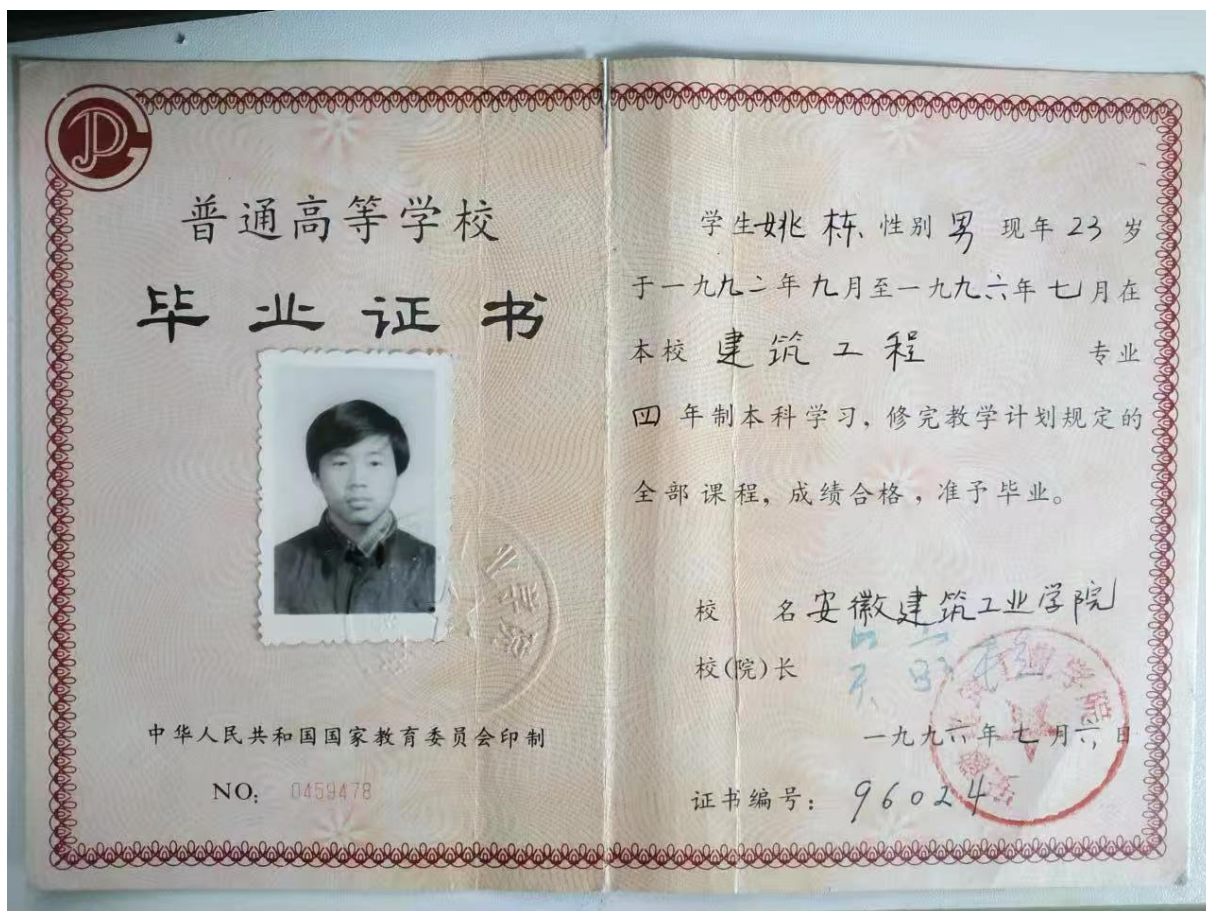 普通高等学校
毕业证书
中华人民共和国国家教育委员会印制
NO: 0459478
学生姚栋 性别 男 现年 23 岁
于一九九二年九月至一九九六年七月在
本校 建筑工程 专业
四 年制本科学习，修完教学计划规定的
全部课程，成绩合格，准予毕业。
校 名 安徽建筑工业学院
校(院)长
一九九六年七月六日
证书编号: 96024